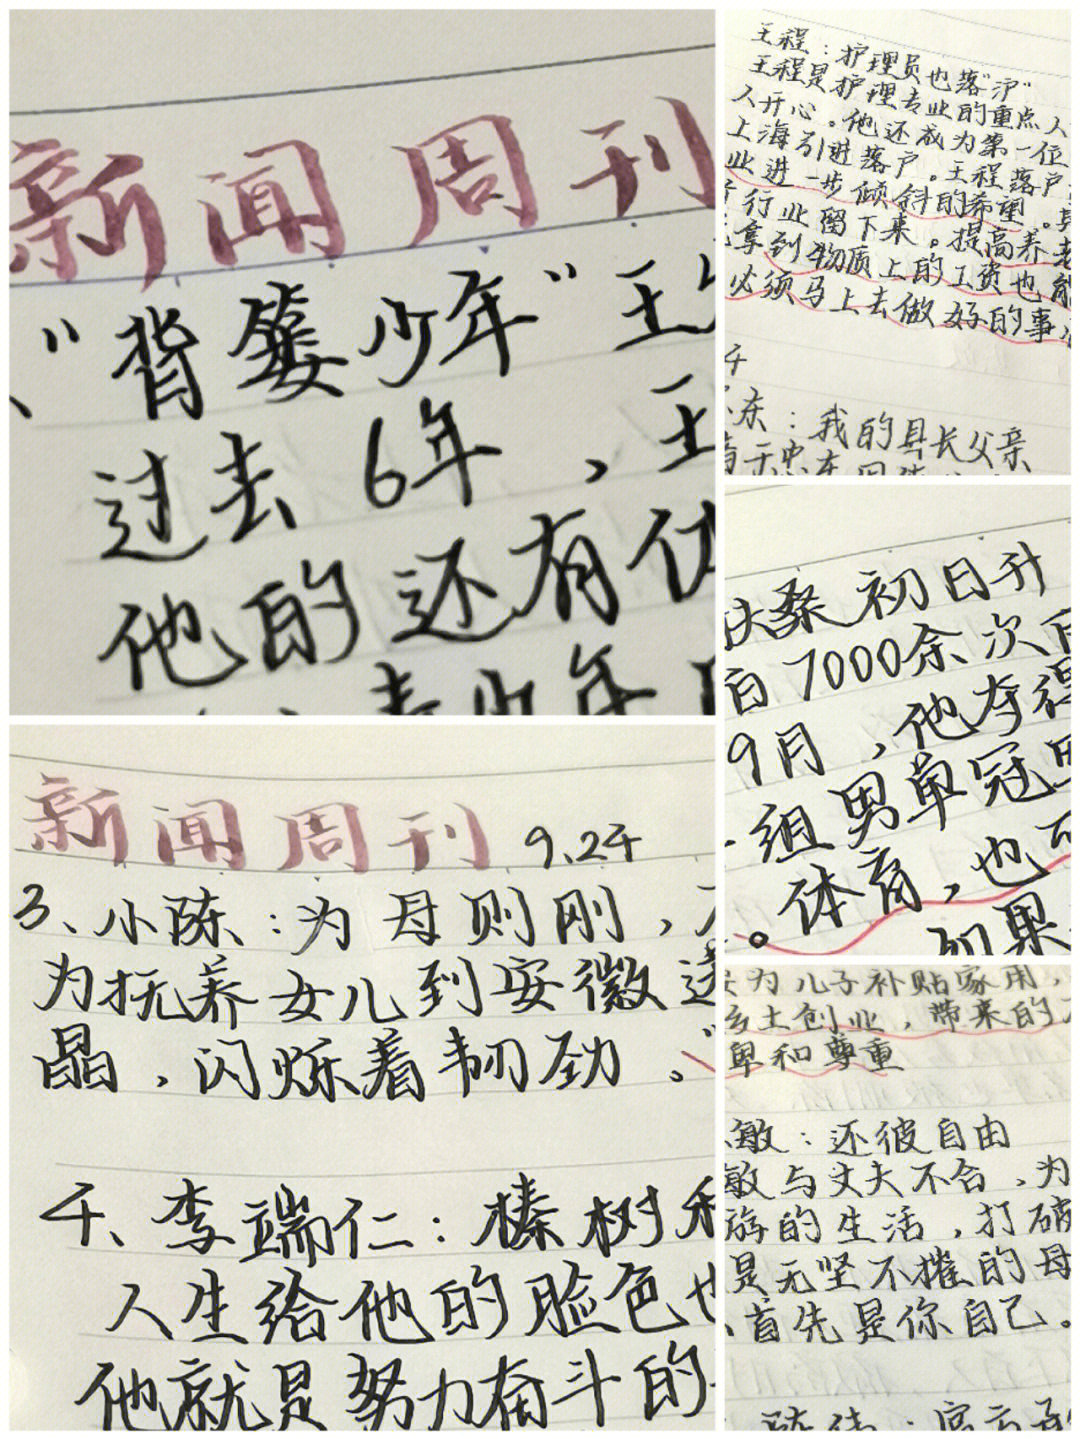 新闻周刊
、“背篓少年”王
过去6年，王
他的还有
王程：护理员也落“沪”
王程是护理专业的重点人
人开心。他还成为第一位
上海引进落户。王程落户
业进一步倾斜的希望。
行业留下来。提高养老
拿到物质上的工资也能
必须马上去做好的事
东：我的县长父亲
扶桑初日升
7000余次
9月，他夺得
组男单冠
。体育，也可
如果
新闻周刊 9.24
3、小陈：为母则刚，
为抚养女儿到安徽送
晶，闪烁着韧劲。”
4、李端仁：榛树
人生给他的脸色也
他就是努力奋斗的
为儿子补贴家用，
乡土创业，带来的
卑和尊重
敏：还彼自由
敏与丈夫不合，为
游的生活，打破
是无坚不摧的母
首先是你自己。